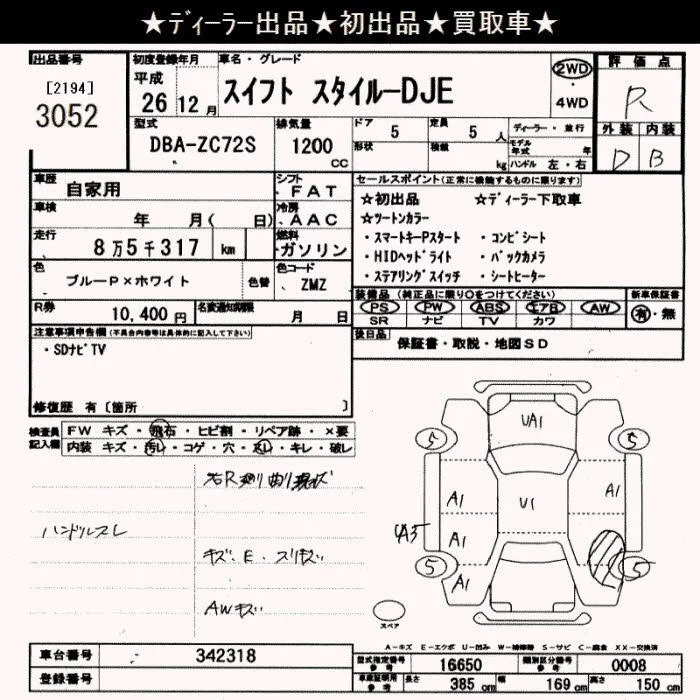 ★ディーラー出品★初出品★買取車★
出品番号
[2194]
3052
初度登録年月
平成
26 12 月
車名・グレード
スイフト スタイルーDJE
2WD
・
4WD
評価点
R
外装 内装
D B
型式
DBA-ZC72S
排気量
1200
CC
ドア 5
形状
定員 5 人
積載 kg
ディーラー・並行
モデル年式 年
ハンドル 左・右
車歴
自家用
シフト
FAT
車検
年 月( 日)
冷房
AAC
走行
8万5千317 km
燃料
ガソリン
色
ブルーP×ホワイト
色替
色コード
ZMZ
R券
10,400円
名変通知期限
月 日
セールスポイント(正常に機能するものに限ります)
★初出品 ★ディーラー下取車
★ツートンカラー
・スマートキーPスタート ・コンビシート
・HIDヘッドライト ・バックカメラ
・ステアリングスイッチ ・シートヒーター
装備品(純正品に限り○をつけてください)
PS PW ABS エアB AW
SR ナビ TV カワ
新車保証書
有・無
後日品
保証書・取説・地図SD
注意事項申告欄(不具合内容等は具体的に記入して下さい)
・SDナビTV
修復歴 有〔箇所 〕
検査員記入欄
FW キズ・飛石・ヒビ割・リペア跡・×要
内装 キズ・汚れ・コゲ・穴・スレ・キレ・破レ
ハンドルスレ
キズ、E・スリキズ
AWキズ
UA1
5 5
A1 U1 A1
A1
A1
5 5
スペア
A-キズ E-エクボ U-凹み W-補修跡 S-サビ C-腐食 XX-交換済
車台番号
342318
登録番号
型式指定番号参考
16650
類別区分番号参考
0008
車庫証明用参考
長さ 385 cm 幅 169 cm 高さ 150 cm